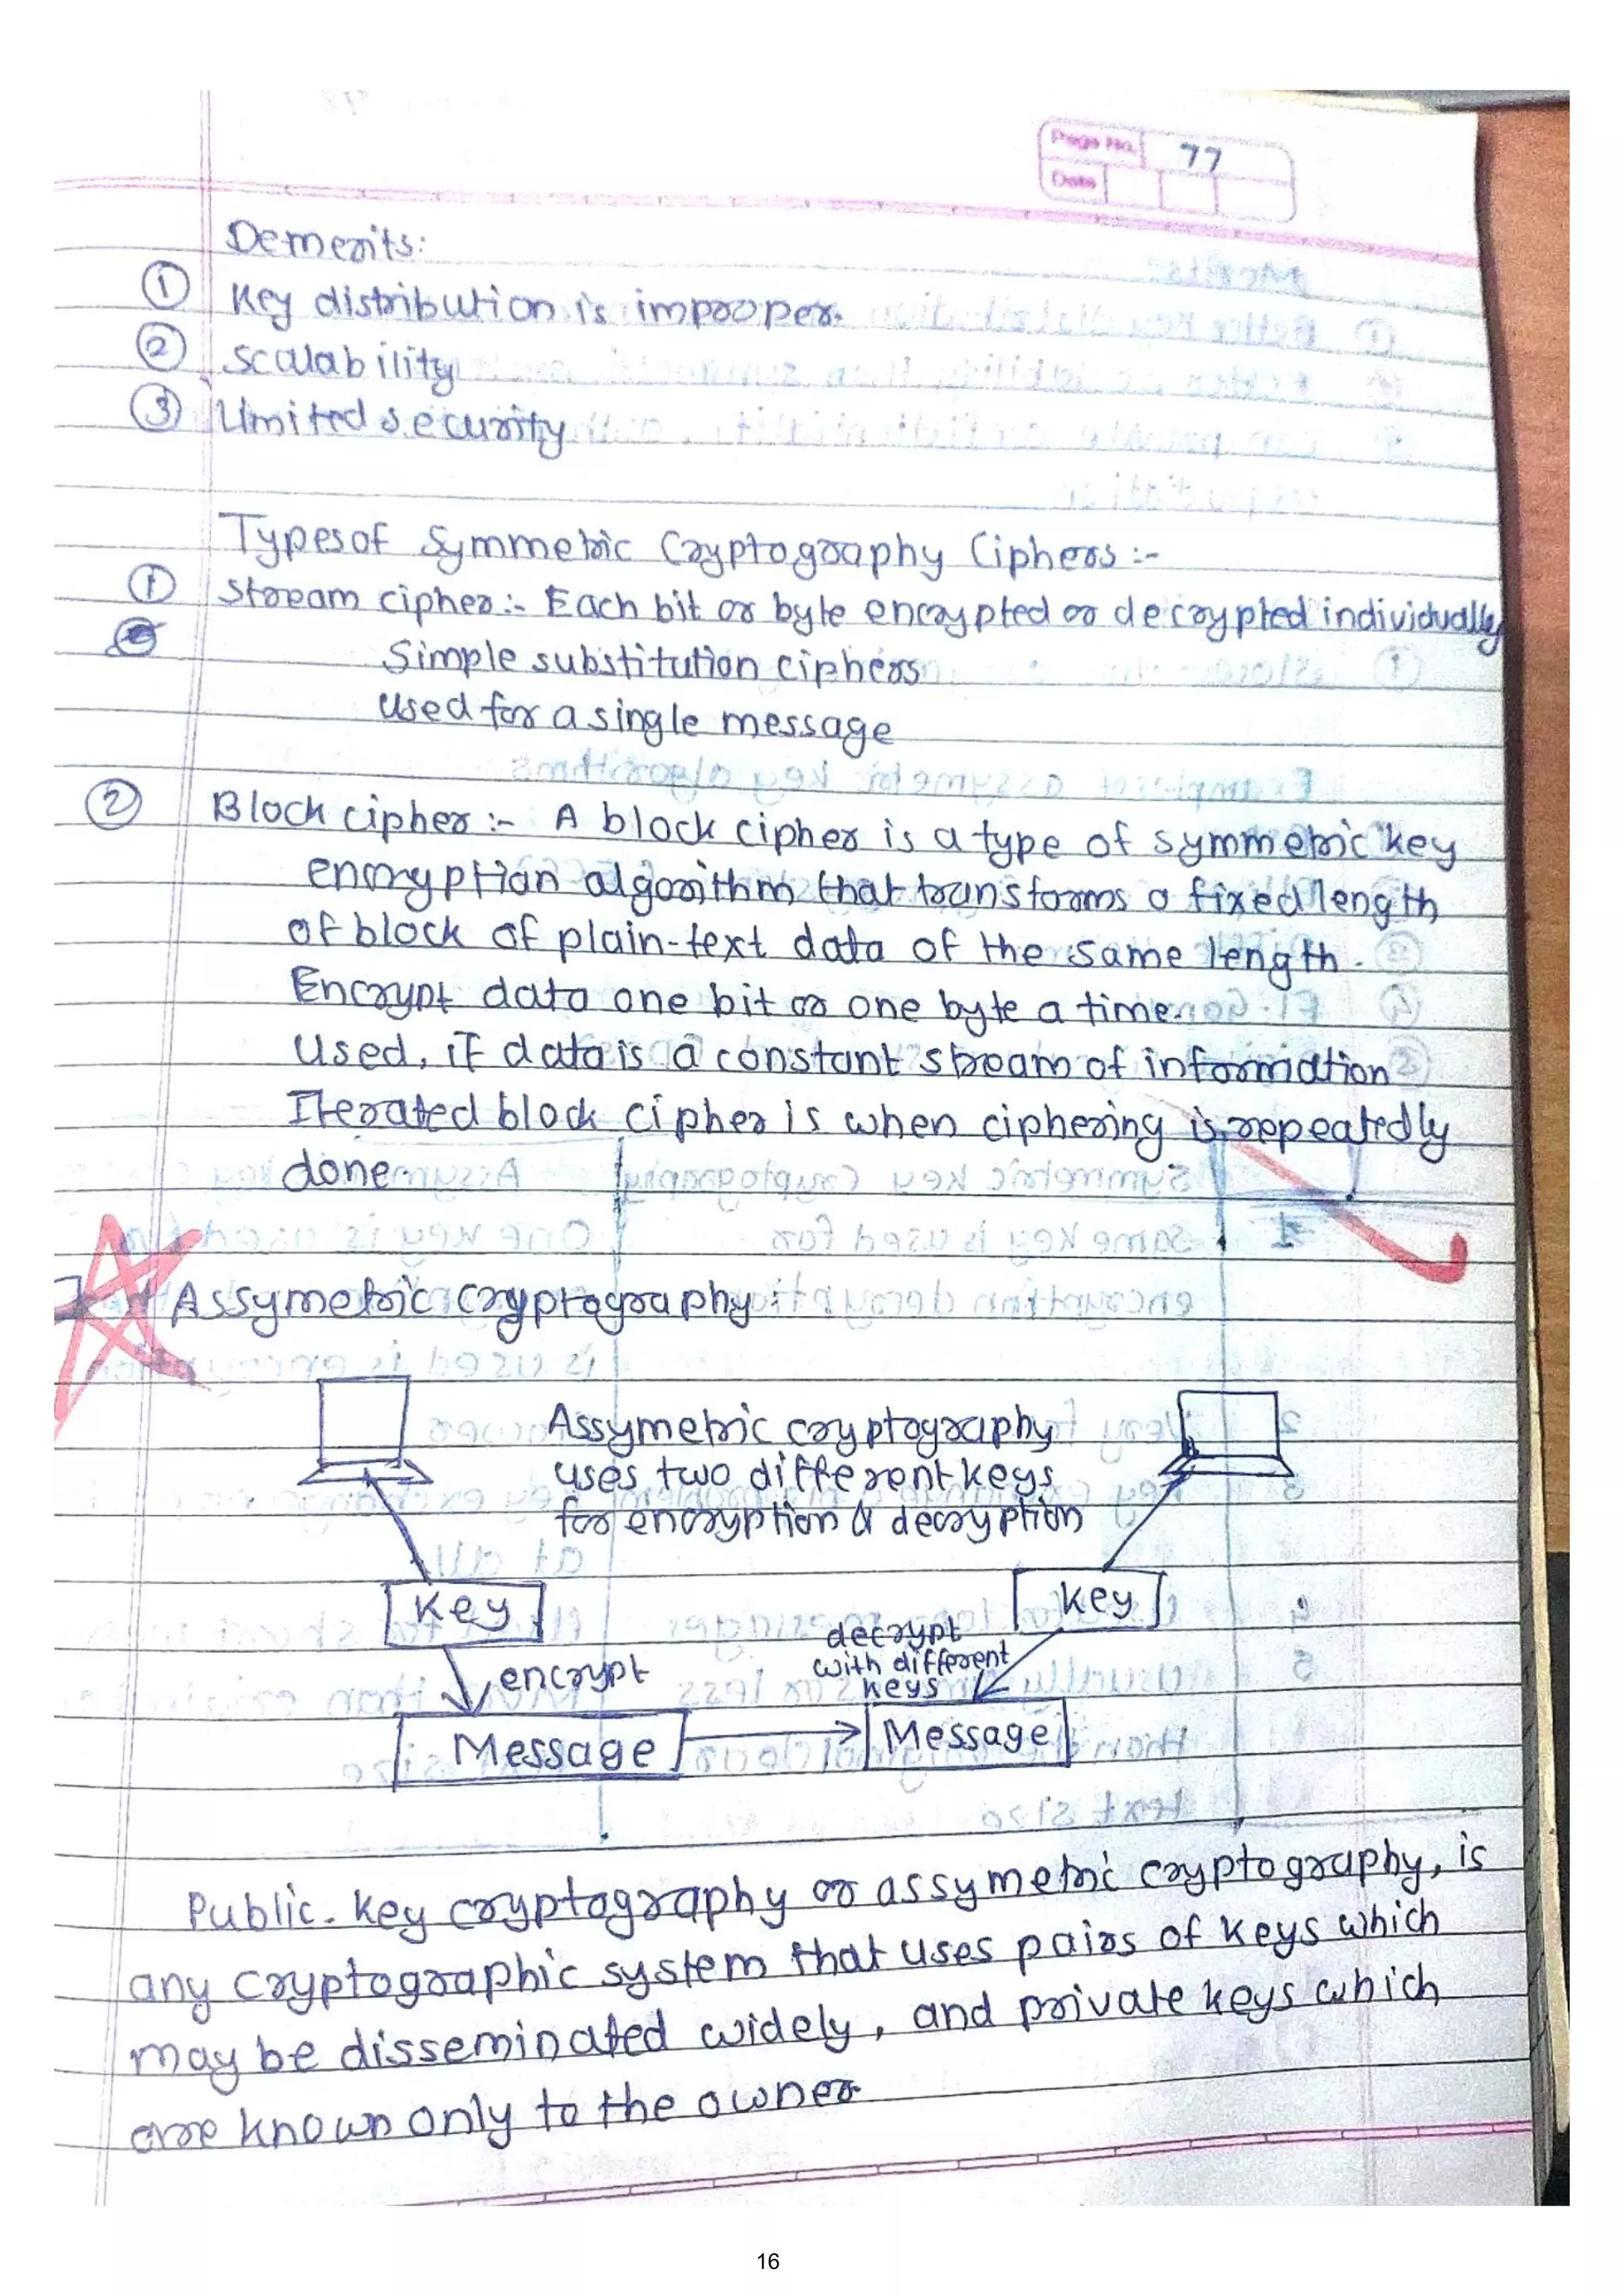 Page No. 77
Date
Demerits:
① Key distribution is improper.
② Scalability
③ Limited security
Types of Symmetric Cryptography Ciphers :-
① Stream cipher :- Each bit or byte encrypted or decrypted individually
Simple substitution ciphers
Used for a single message
② Block cipher :- A block cipher is a type of symmetric key
encryption algorithm that transforms a fixed length
of block of plain-text data of the same length.
Encrypt data one bit or one byte a time.
Used, if data is a constant stream of information
Iterated block cipher is when ciphering is repeatedly
done
Assymetric cryptography :
Assymetric cryptography
uses two different keys
for encryption & decryption
Key
key
encrypt
decrypt
with different
keys
Message
Message
Public-key cryptography or assymetric cryptography, is
any cryptographic system that uses pairs of keys which
may be disseminated widely, and private keys which
are known only to the owner
16